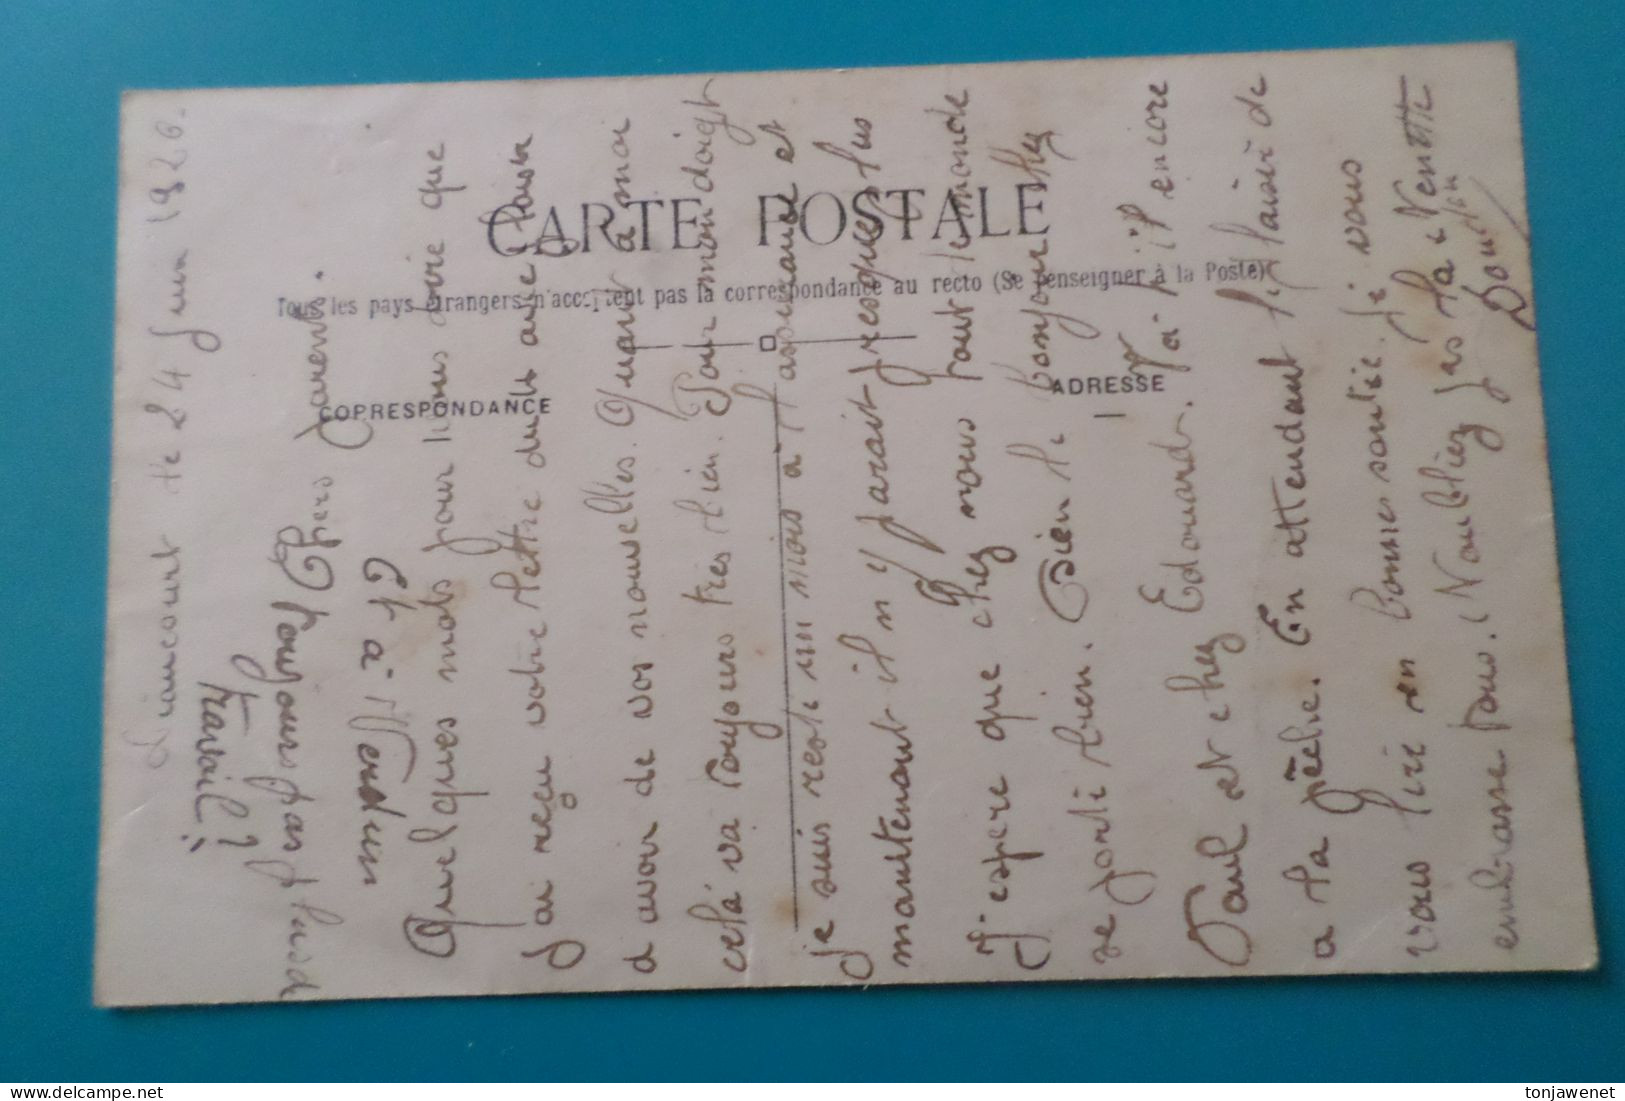 Liancourt le 24 Juin 1920.
Chers Parents.
Quelques mots pour vous dire que
j'ai reçu votre lettre du
d'avoir de vos nouvelles. Quant à moi
celà va toujours très bien. Pour mon doigt
je suis resté un mois à l'assurance et
maintenant il n'y parait presque plus
J'espère que chez nous tout le monde
se porte bien. Bien le bonjour chez
Paul et chez Edouard. Va-t-il encore
a la pêche. En attendant le plaisir de
vous lire en bonne santée. Je vous
embrasse tous. N'oubliez pas la
Et à Verdun
Toujours pas plus de
travail?
CARTE POSTALE
Tous les pays étrangers n'acceptent pas la correspondance au recto (Se renseigner à la Poste)
CORRESPONDANCE
ADRESSE
tonjawenet